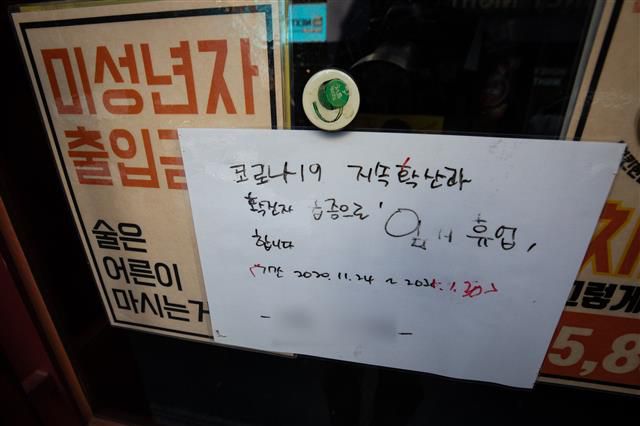 미성년자
출입금
술은
어른이
마시는거
코로나19 지속확산과
확진자 급증으로
임시 휴업,
합니다
기간 2020.11.24 ~ 2021.1.30
그렇게
5,8